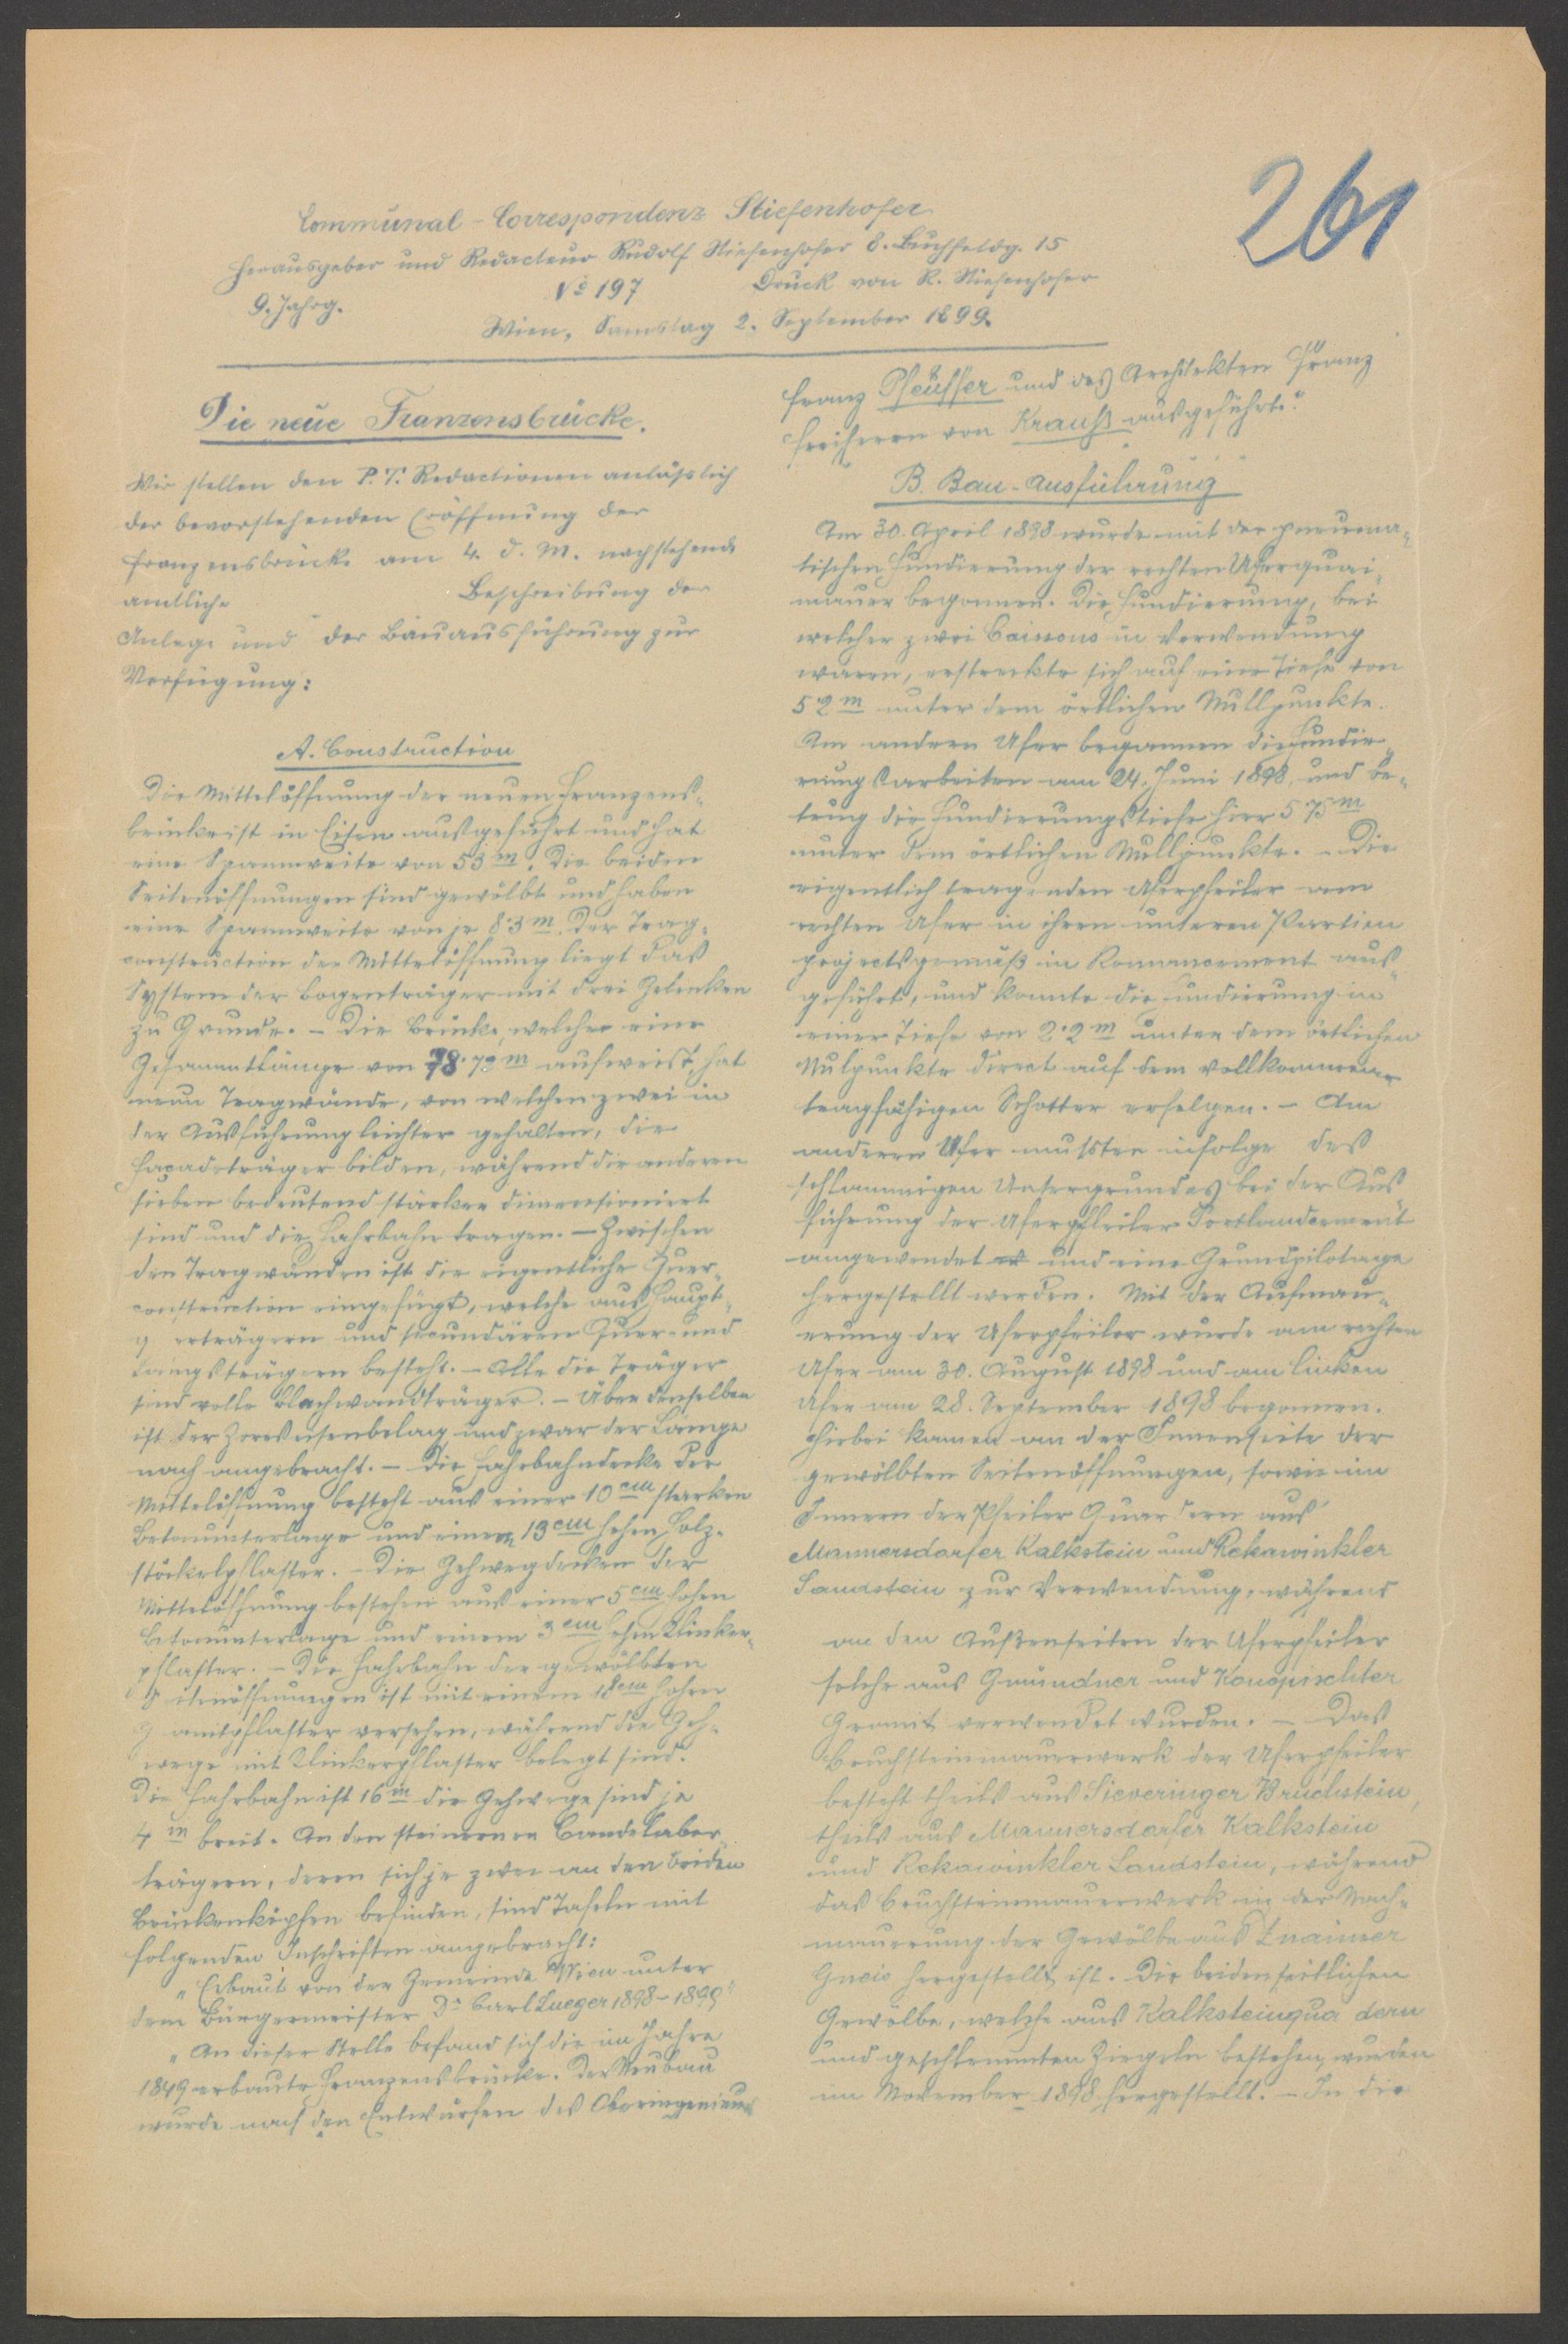 261
Communal-Correspondenz Stiefenhofer
Herausgeber und Redacteur Rudolf Stiefenhofer 8. Buchfeldg. 15
9. Jahrg. No 197 Druck von R. Stiefenhofer
Wien, Samstag 2. September 1899.
Die neue Franzensbrücke.
Wir stellen den P. T. Redactionen anläßlich
der bevorstehenden Eröffnung der
Franzensbrücke am 4. d. M. nachstehende
amtliche Beschreibung der
Anlage und der Bauausführung zur
Verfügung:
A. Construction
Die Mittelöffnung der neuen Franzens-
brücke ist in Eisen ausgeführt und hat
eine Spannweite von 53 m. Die beiden
Seitenöffnungen sind gewölbt und haben
eine Spannweite von je 8·3 m. Der Trag-
construction der Mittelöffnung liegt das
System der Bogenträger mit drei Gelenken
zu Grunde. – Die Brücke, welche eine
Gesammtlänge von 78·72 m aufweist, hat
neun Tragwände, von welchen zwei in
der Ausführung leichter gehalten, die
Façadeträger bilden, während die anderen
sieben bedeutend stärker dimensioniert
sind und die Fahrbahn tragen. – Zwischen
den Tragwänden ist die eigentliche Quer-
construction eingefügt, welche aus Haupt-
q erträgern und secundären Quer- und
Längsträgern besteht. – Alle die Träger
sind volle Blechwandträger. – Über denselben
ist der Zoreseisenbelag und zwar der Länge
nach angebracht. – Die Fahrbahndecke der
Mittelöffnung besteht aus einer 10 cm starken
Betonunterlage und einem 13 cm hohen Holz-
stöckelpflaster. – Die Gehwegdecken der
Mittelöffnung bestehen aus einer 5 cm hohen
Betonunterlage und einem 3 cm hohen Klinker-
pflaster. – Die Fahrbahn der gewölbten
S itenöffnungen ist mit einem 18 cm hohen
G anitpflaster versehen, während die Geh-
wege mit Klinkerpflaster belegt sind.
Die Fahrbahn ist 16 m die Gehwege sind je
4 m breit. An den steinernen Candelaber-
trägern, deren sich je zwei an den beiden
Brückenköpfen befinden, sind Tafeln mit
folgenden Inschriften angebracht:
„Erbaut von der Gemeinde Wien unter
dem Bürgermeister Dr. Carl Lueger 1898–1899“
„An dieser Stelle befand sich die im Jahre
1849 erbaute Franzensbrücke. Der Neubau
wurde nach den Entwürfen des Oberingenieurs
Franz Pfeuffer und des Architekten Franz
Freiherrn von Krauß ausgeführt.“
B. Bau-Ausführung
Am 30. April 1898 wurde mit der pneuma-
tischen Fundierung der rechten Uferquai-
mauer begonnen. Die Fundierung, bei
welcher zwei Caissons in Verwendung
waren, erstreckte sich auf eine Tiefe von
5·2 m unter dem örtlichen Nullpunkte.
Am andern Ufer begannen die Fundie-
rungsarbeiten am 24. Juni 1898, und be-
trug die Fundierungstiefe hier 5·75 m
unter dem örtlichen Nullpunkte. – Die
eigentlich tragenden Uferpfeiler am
rechten Ufer in ihren unteren Partien
projectsgemäß in Romancement aus-
geführt, und konnte die Fundierung in
einer Tiefe von 2·2 m unter dem örtlichen
Nulpunkte direct auf dem vollkommen
tragfähigen Schotter erfolgen. – Am
anderen Ufer mußten infolge des
schlammigen Untergrundes bei der Aus-
führung der Uferpfeiler Portlandcement
angewendet und eine Grundpilotage
hergestellt werden. Mit der Aufmau-
erung der Uferpfeiler wurde am rechten
Ufer am 30. August 1898 und am linken
Ufer am 28. September 1898 begonnen.
Hiebei kamen an der Innenseite der
gewölbten Seitenöffnungen, sowie im
Innern der Pfeiler Quadern aus
Mannersdorfer Kalkstein und Rekawinkler
Sandstein zur Verwendung, während
an den Außenseiten der Uferpfeiler
solche aus Gmündner und Konopischter
Granit verwendet wurden. – Das
Bruchsteinmauerwerk der Uferpfeiler
besteht theils aus Sieveringer Bruchstein,
theils aus Mannersdorfer Kalkstein
und Rekawinkler Sandstein, während
das Bruchsteinmauerwerk in der Nach-
mauerung der Gewölbe aus Znaimer
Gneis hergestellt ist. Die beiden seitlichen
Gewölbe, welche aus Kalksteinqua dern
und geschlemmten Ziegeln bestehen, wurden
im November 1898 hergestellt. – In die